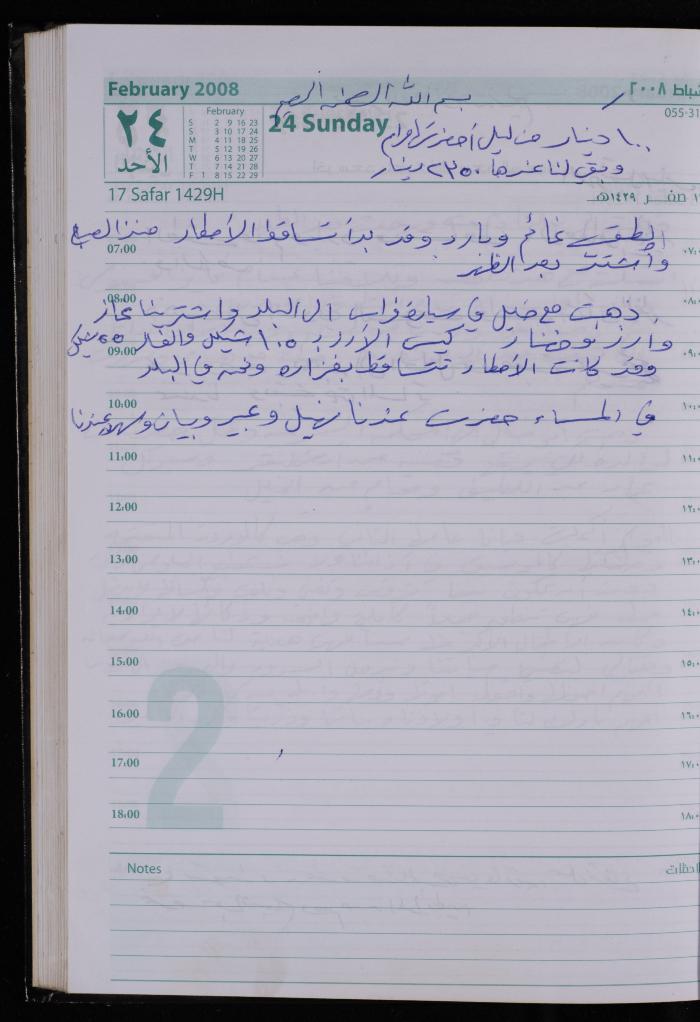 February 2008
شباط ٢٠٠٨
بسم الله الرحمن الرحيم
055-31
٢٤
الأحد
February
S 2 9 16 23
S 3 10 17 24
M 4 11 18 25
T 5 12 19 26
W 6 13 20 27
T 7 14 21 28
F 1 8 15 22 29
24 Sunday
١٠٠ دينار من ليل أحضرتها مرام
وبقي لنا عندها ٢٣٥٠ دينار
17 Safar 1429H
صفر ١٤٢٩هـ
الطقس غائم وبارد وقد بدأ تساقط الأمطار منذ الصبح
07:00
٠٧:٠
وأشتدت بعد الظهر
08:00
٠٨:٠
ذهبت مع خليل في سيارة فراس الى البلد واشترينا غاز
وارز وخضار كيس الأرز بـ ١٠٥ شيكل والغاز ٥٥ شيكل
09:00
٠٩:٠
وقد كانت الأمطار تتساقط بغزارة ونحن في البلد
10:00
١٠:٠
في المساء حضرت عندنا نهيل وعبير وبيان وسهرو عندنا
11:00
١١:٠
12:00
١٢:٠
13:00
١٣:٠
14:00
١٤:٠
15:00
١٥:٠
16:00
١٦:٠
17:00
١٧:٠
18:00
١٨:٠
2
Notes